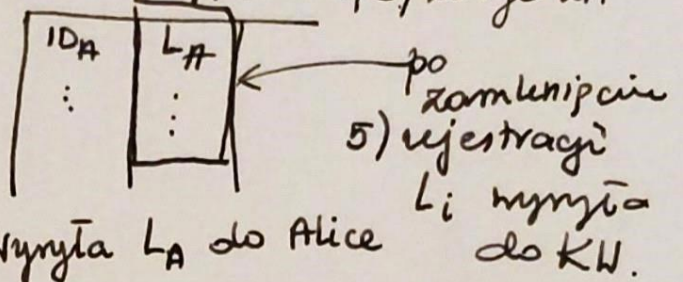 ID_A L_A
⋮ ⋮
po
zamknięciu
5) rejestracji
L_i wysyła
do KW.
wysyła L_A do Alice